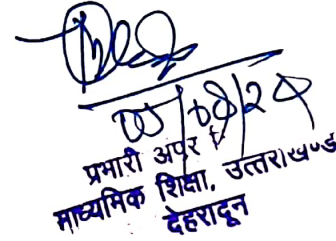 05/08/24
प्रभारी अपर
माध्यमिक शिक्षा, उत्तराखण्ड
देहरादून